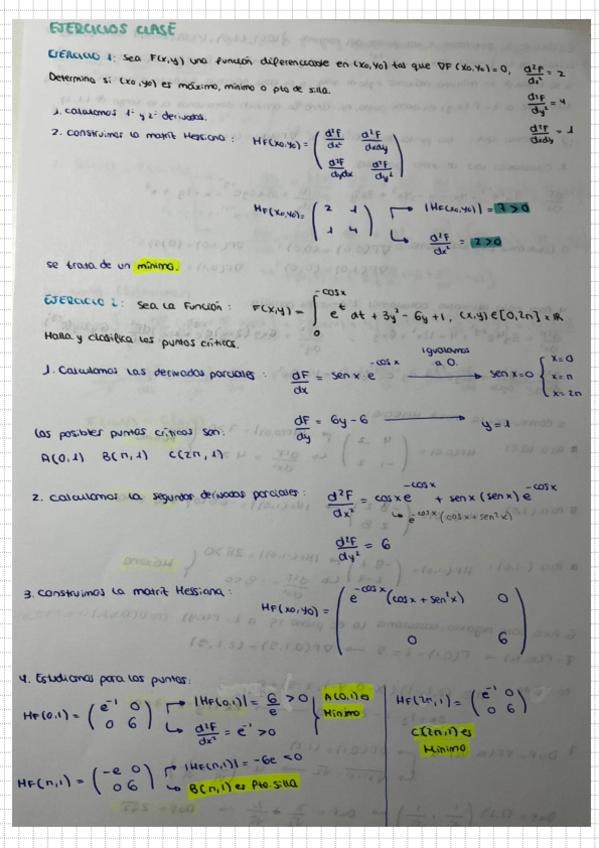 EJERCICIOS CLASE
EJERCICIO 1: Sea F(x,y) una función diferenciable en (x0,y0) tal que ∇F(x0,y0)=0, d²F/dx² = 2
Determina si (x0,y0) es máximo, mínimo o pto de silla. d²F/dy² = 4
1. Calculamos 1ª y 2ª derivadas. d²F/dxdy = 1
2. Construimos la matriz Hessiana: HF(x0,y0) = ( d²F/dx² d²F/dxdy
d²F/dydx d²F/dy² )
HF(x0,y0) = ( 2 1 → |HF(x0,y0)| = 7>0
1 4 ) ↳ d²F/dx² = 2>0
se trata de un mínimo.
EJERCICIO 2: Sea la función: F(x,y) = ∫ 0 -cosx e^t dt + 3y² - 6y + 1, (x,y) ∈ [0,2π] x ℝ
Halla y clasifica los puntos críticos.
1. Calculamos las derivadas parciales: dF/dx = senx e^-cosx igualamos a 0. → senx=0 { x=0
x=π
x=2π
dF/dy = 6y-6 → y=1
Los posibles puntos críticos son:
A(0,1) B(π,1) C(2π,1)
2. Calculamos la segundas derivadas parciales: d²F/dx² = cosx e^-cosx + senx (senx) e^-cosx
↳ e^-cosx (cosx + sen²x)
d²F/dy² = 6
3. Construimos la matriz Hessiana: HF(x0,y0) = ( e^-cosx (cosx + sen²x) 0
0 6 )
4. Estudiamos para los puntos:
HF(0,1) = ( e^-1 0 → |HF(0,1)| = 6/e > 0 } A(0,1) es
0 6 ) ↳ d²F/dx² = e^-1 >0 Mínimo
HF(π,1) = ( -e 0 → |HF(π,1)| = -6e <0
0 6 ) ↳ B(π,1) es Pto. silla
HF(2π,1) = ( e^-1 0
0 6 )
C(2π,1) es
Mínimo